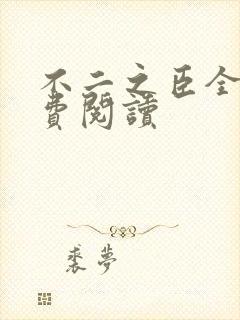 不二之臣全
費閱讀
裘夢